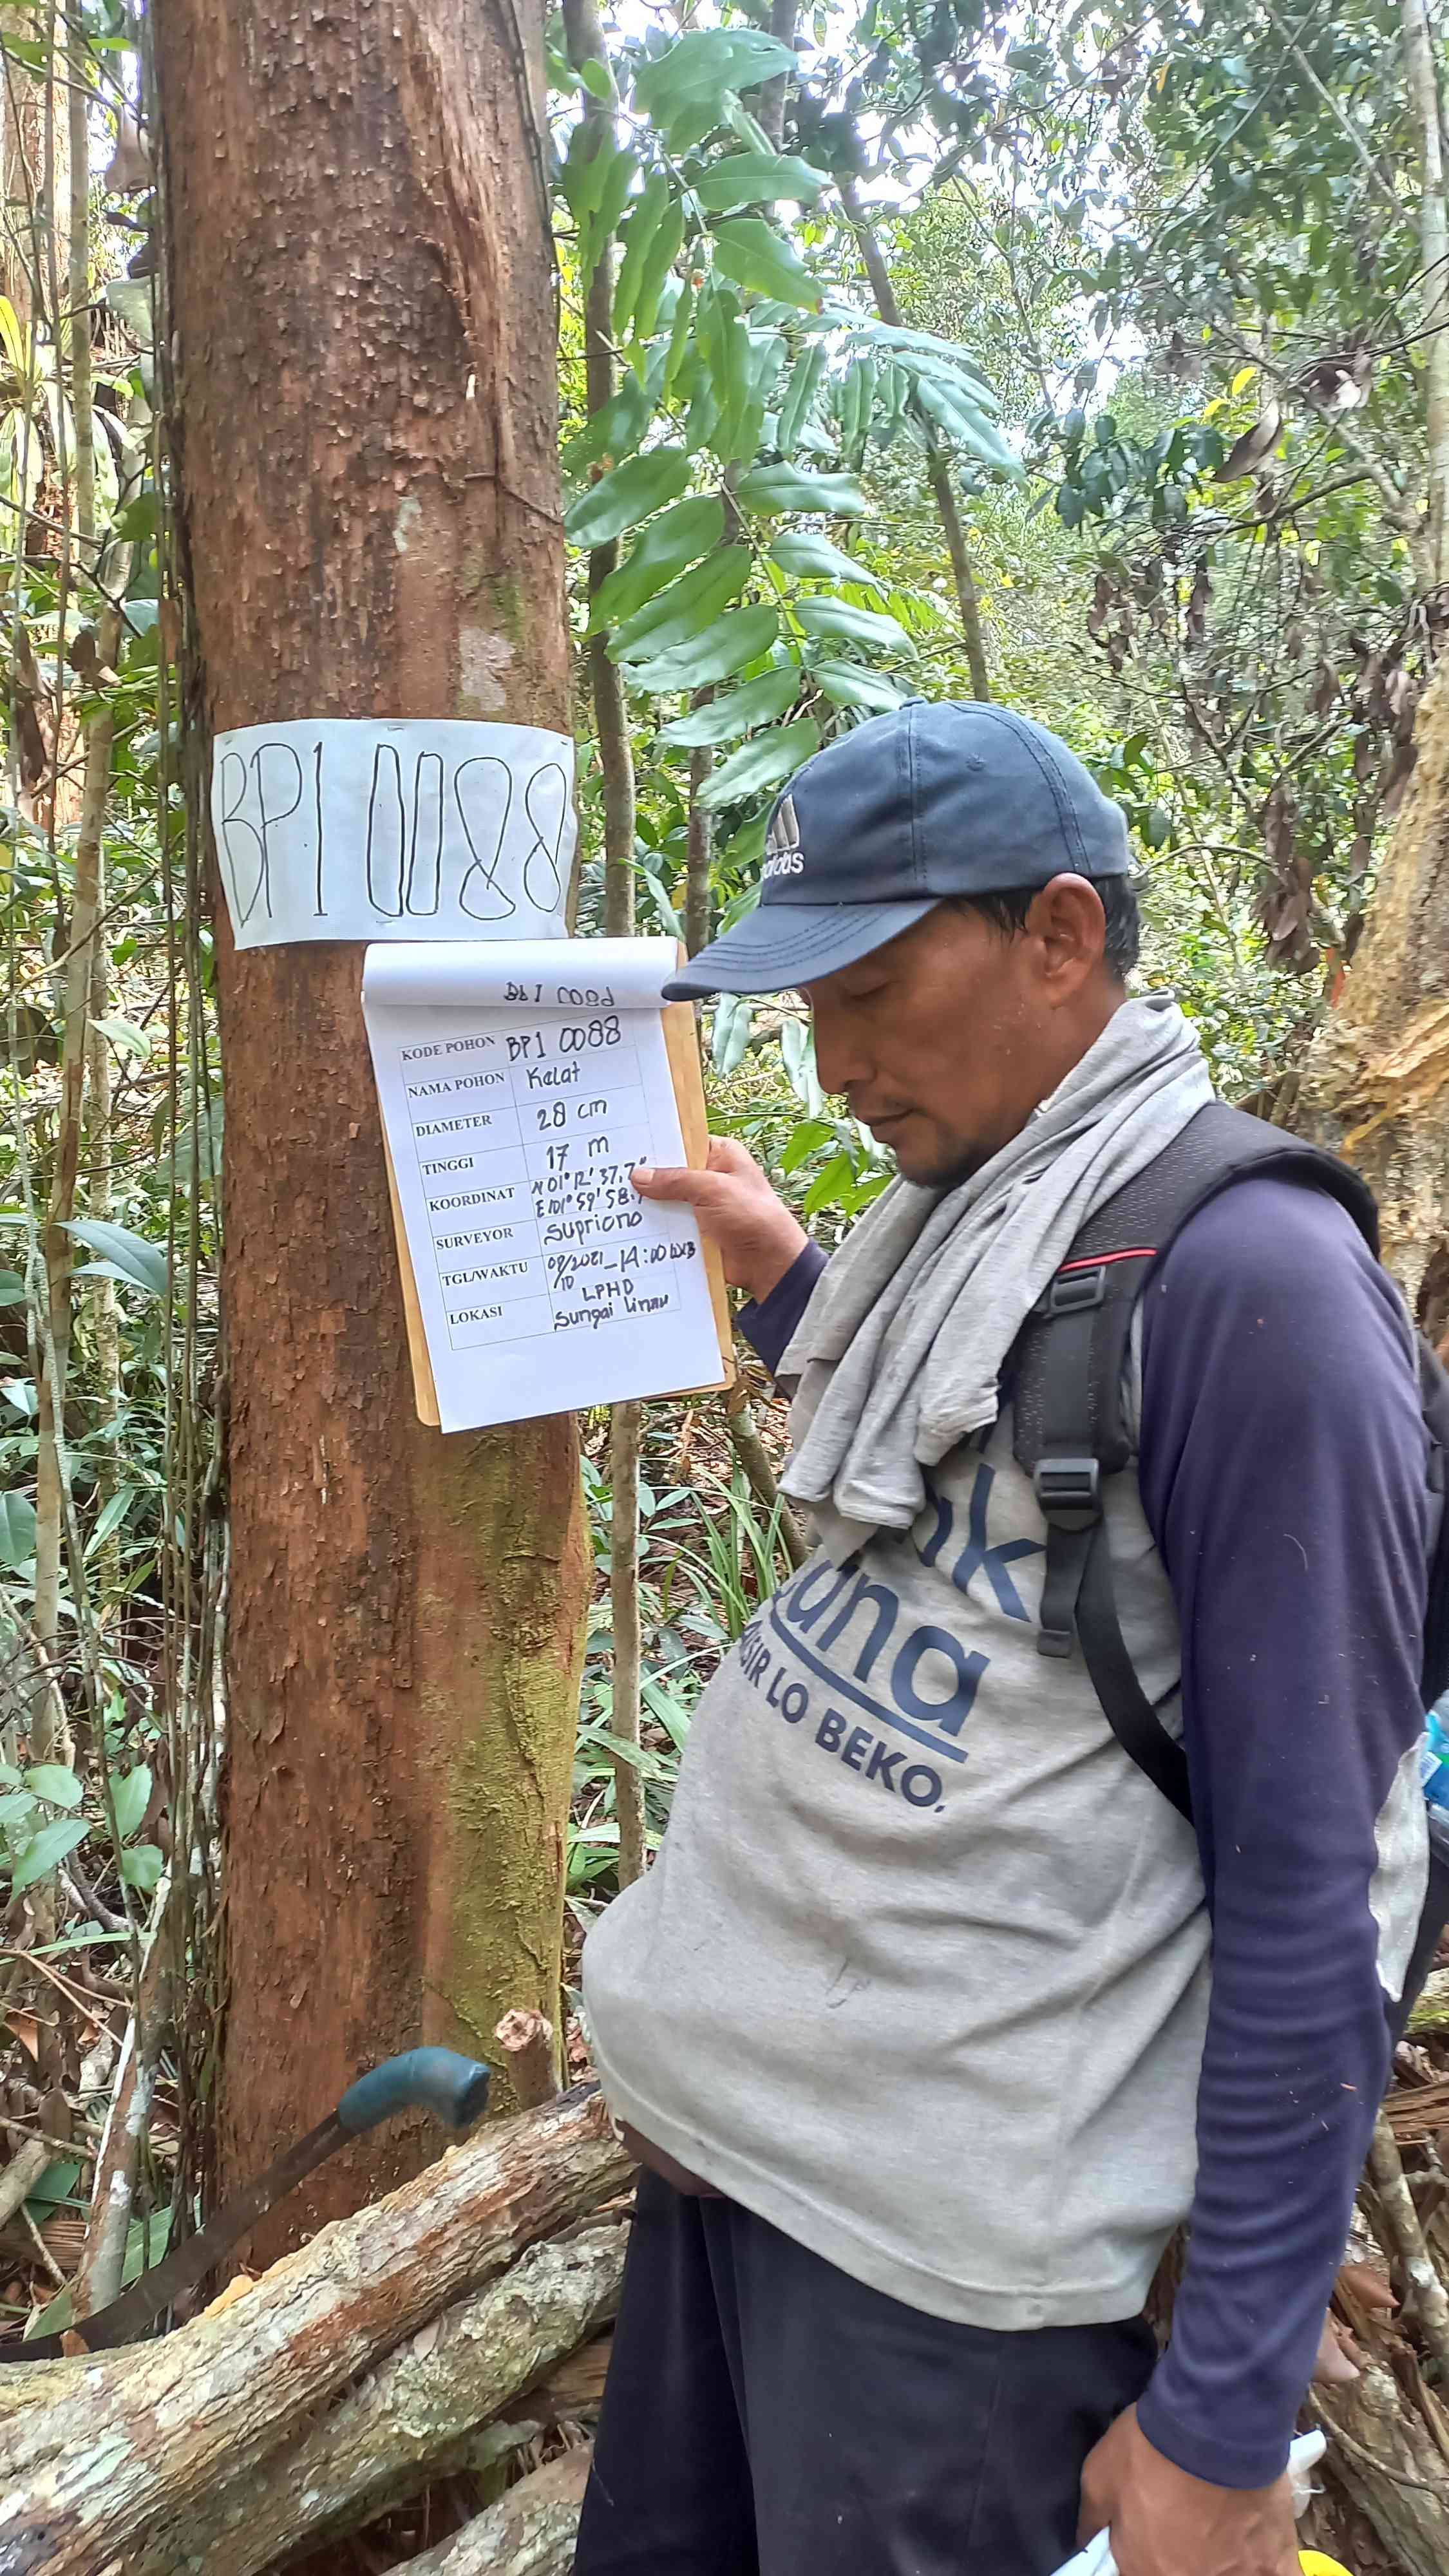 BP1 0088
adidas
KODE POHON BP1 0088
NAMA POHON Kelat
DIAMETER 28 cm
TINGGI 17 m
KOORDINAT N 01° 12' 37,7"
E 101° 59' 58,
SURVEYOR Supriono
TGL/WAKTU 09/2021_14:00 WIB
/10
LOKASI LPHD
Sungai linau
una
SIR LO BEKO.